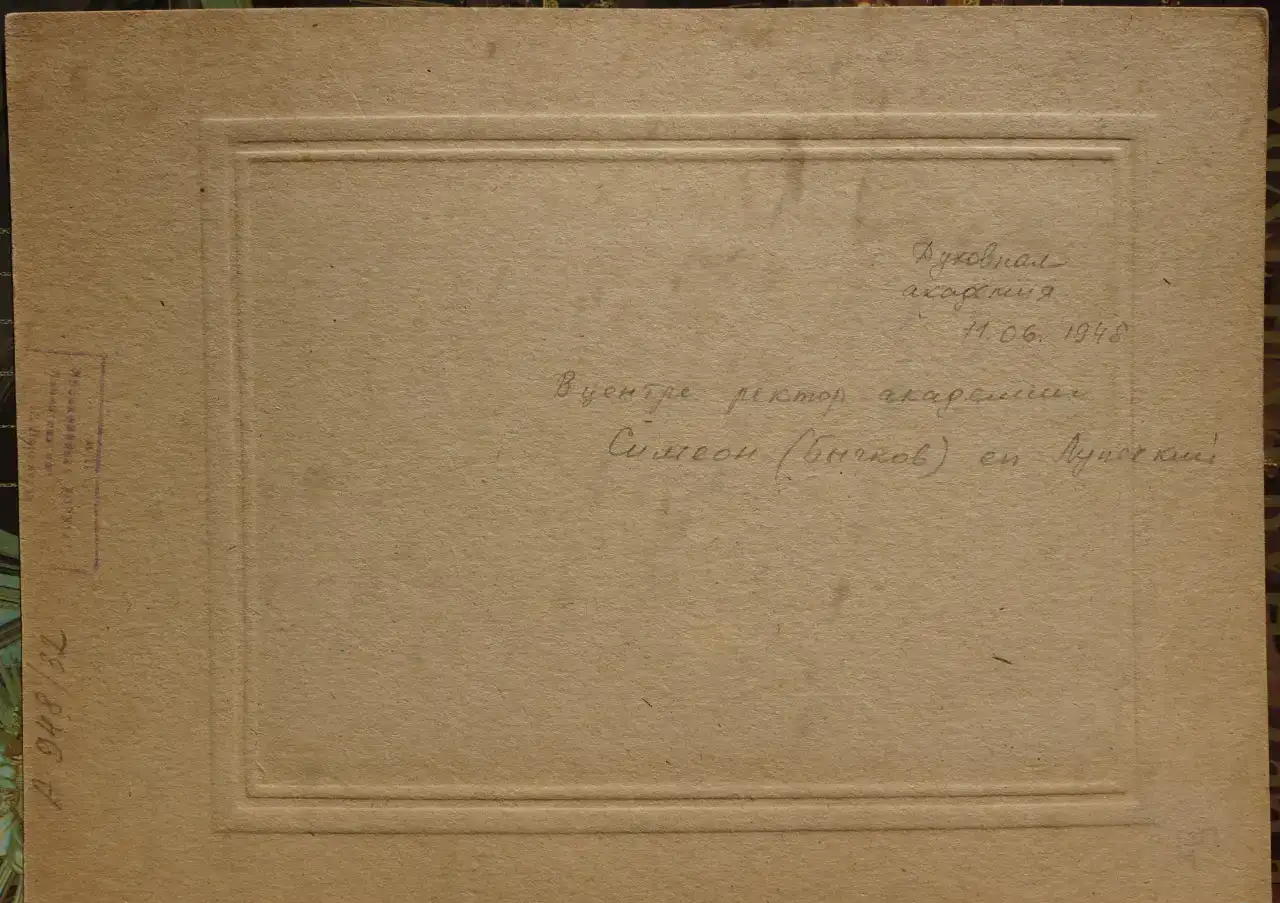 Духовная
академия
11.06. 1948
В центре ректор академии
Симеон (Бычков) еп Лужский
А 948/32